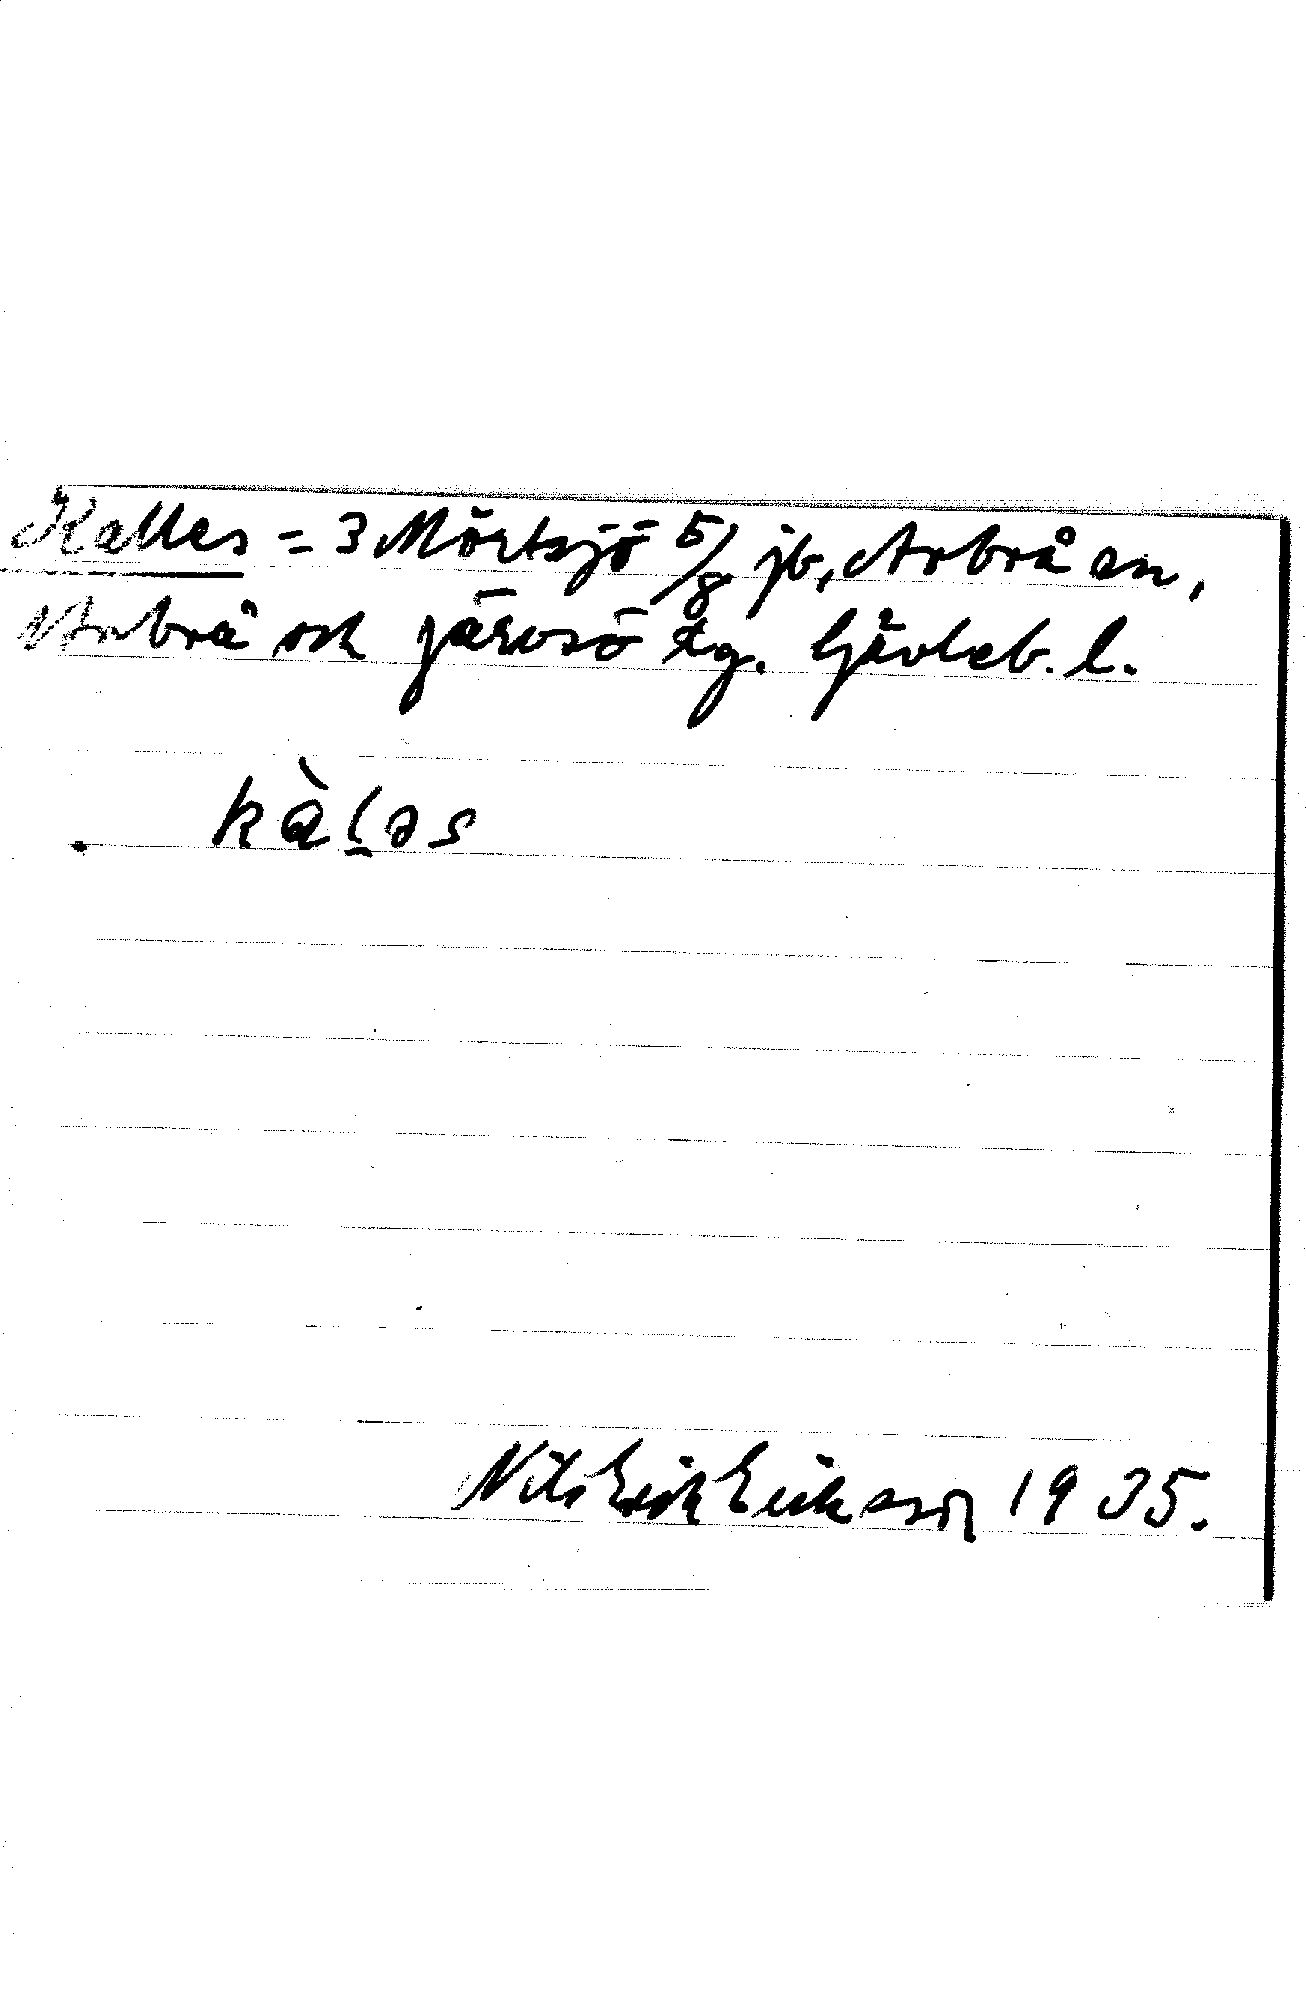 Kalles = 3 Mörtsjö 5/8 jb, Arbrå sn,
Arbrå och Järvsö tg. Gävleb. l.
kàl̠əs
Nils Erik Eriksson 1935.